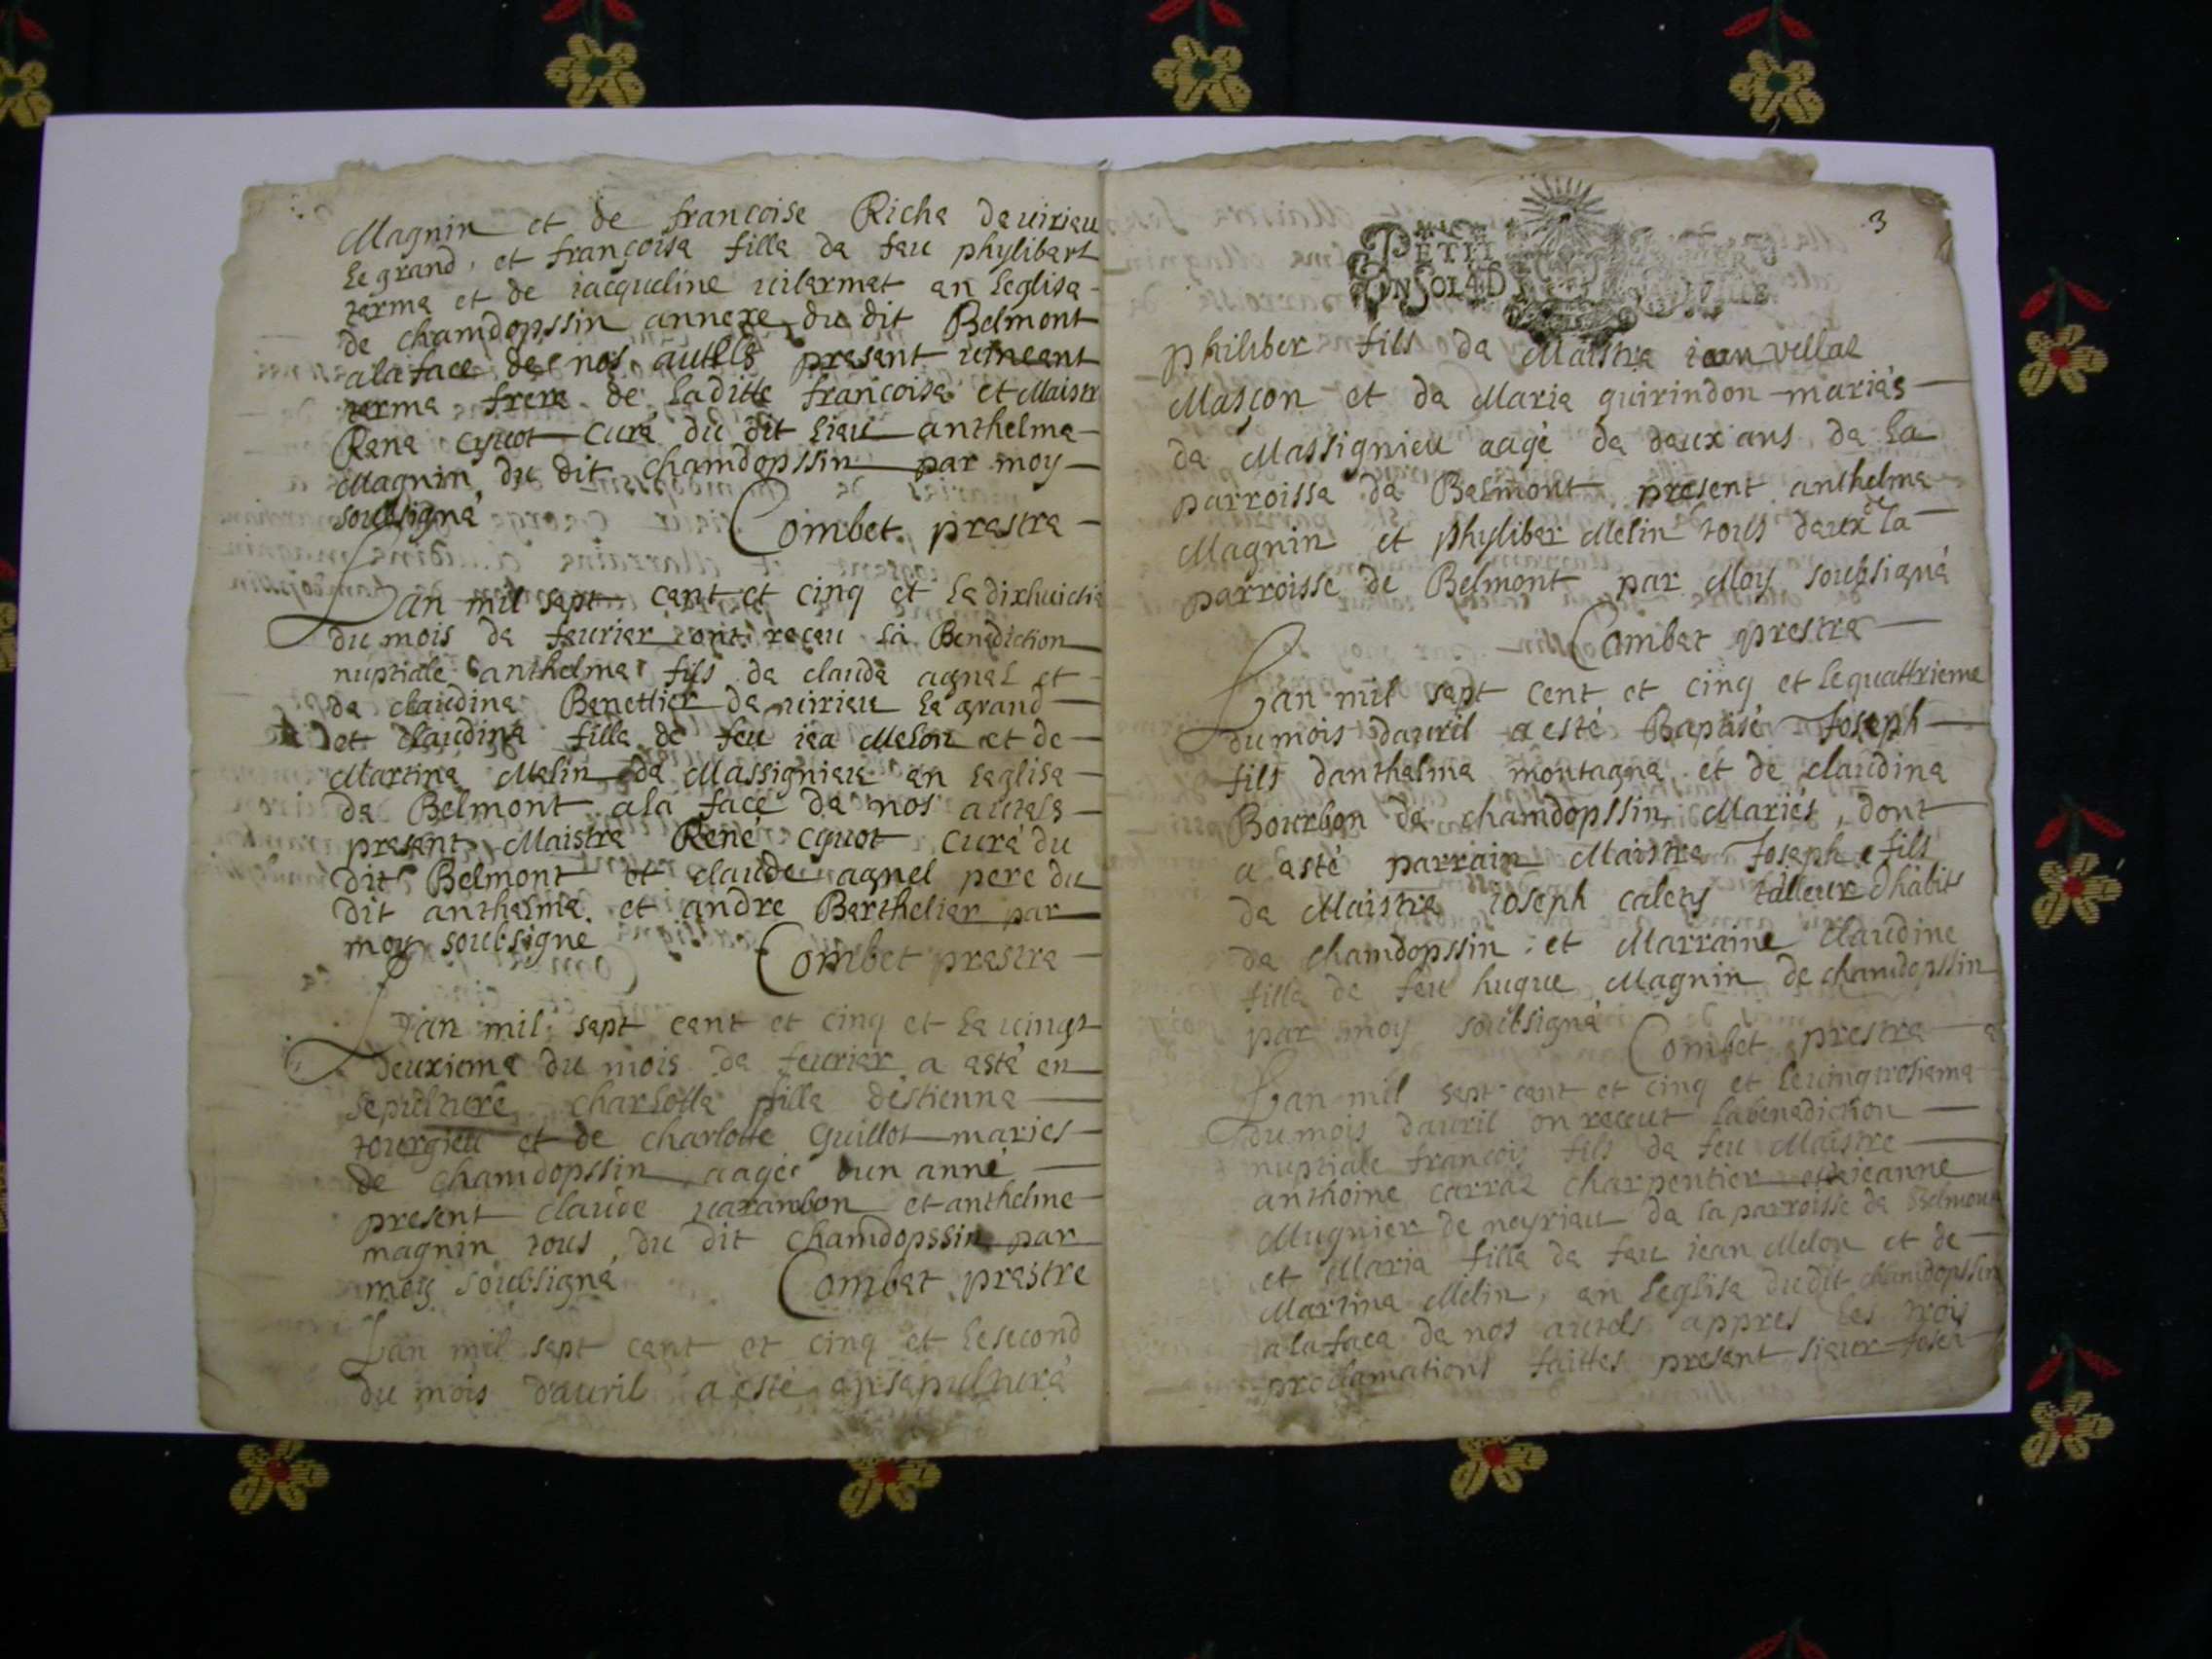 Magnin et de francoise Riche de uirieu
le grand, et francoise fille de feu phylibert
terme et de iacqueline uilermet en leglise
de chamdopssin annexe du dit Belmont
a la face de nos autels present uincent
terme frere de laditte francoise et Maistr
Rene cyuot curé du dit lieu anthelme
Magnin du dit chamdopssin par moy
soubsigné Combet prestre
Lan mil sept cent et cinq et le dixhuictie
du mois de feurier ont receu la Benediction
nuptiale anthelme fils de claude agnel et
de claudine Benettier de uirieu le grand
et claudine fille de feu iea Melon et de
Martine Melin de Massignieu en leglise
de Belmont a la face de nos autels
present Maistre René cyuot curé du
dit Belmont et claude agnel pere du
dit anthelme et andre Berthelier par
moy soubsigne Combet prestre
Lan mil sept cent et cinq et le uingt
deuxieme du mois de feurier a esté en
sepulture charlotte fille destienne
tourgieu et de charlotte Guillot mariés
de chamdopssin aagée dun anné
present claude uarambon et anthelme
magnin tous du dit chamdopssin par
moy soubsigné Combet prestre
Lan mil sept cent et cinq et le second
du mois dauril a esté ensepulturé
3
philiber fils de Maistre iean vellat
Masçon et de Marie guirindon mariés
de Massignieu aagé de deux ans de la
parroisse de Belmont present anthelme
Magnin et phyliber Melin tous deux de la
parroisse de Belmont par Moy soubsigné
Combet prestre
Lan mil sept cent et cinq et le quattrieme
du mois dauril a esté Baptisé Joseph
fils danthelme montagne et de claudine
Bourbon de chamdopssin Mariés, dont
a esté parrain Maistre Joseph fils
de Maistre Joseph caleys talleur dhabits
de chamdopssin et Marraine claudine
fille de feu hugue Magnin de chamdopssin
par moy soubsigné Combet prestre
Lan mil sept cent et cinq et le uingtrosieme
du mois dauril on receut la benediction
nuptiale francois fils de feu Maistre
anthoine carraz charpentier et de ieanne
Mugnier de neyrieu de la parroisse de Belmont
et Marie fille de feu iean Melon et de
Martine Melin, en leglise du dit chamdopssin
a la face de nos autels appres les trois
proclamations faittes present sieur Josep